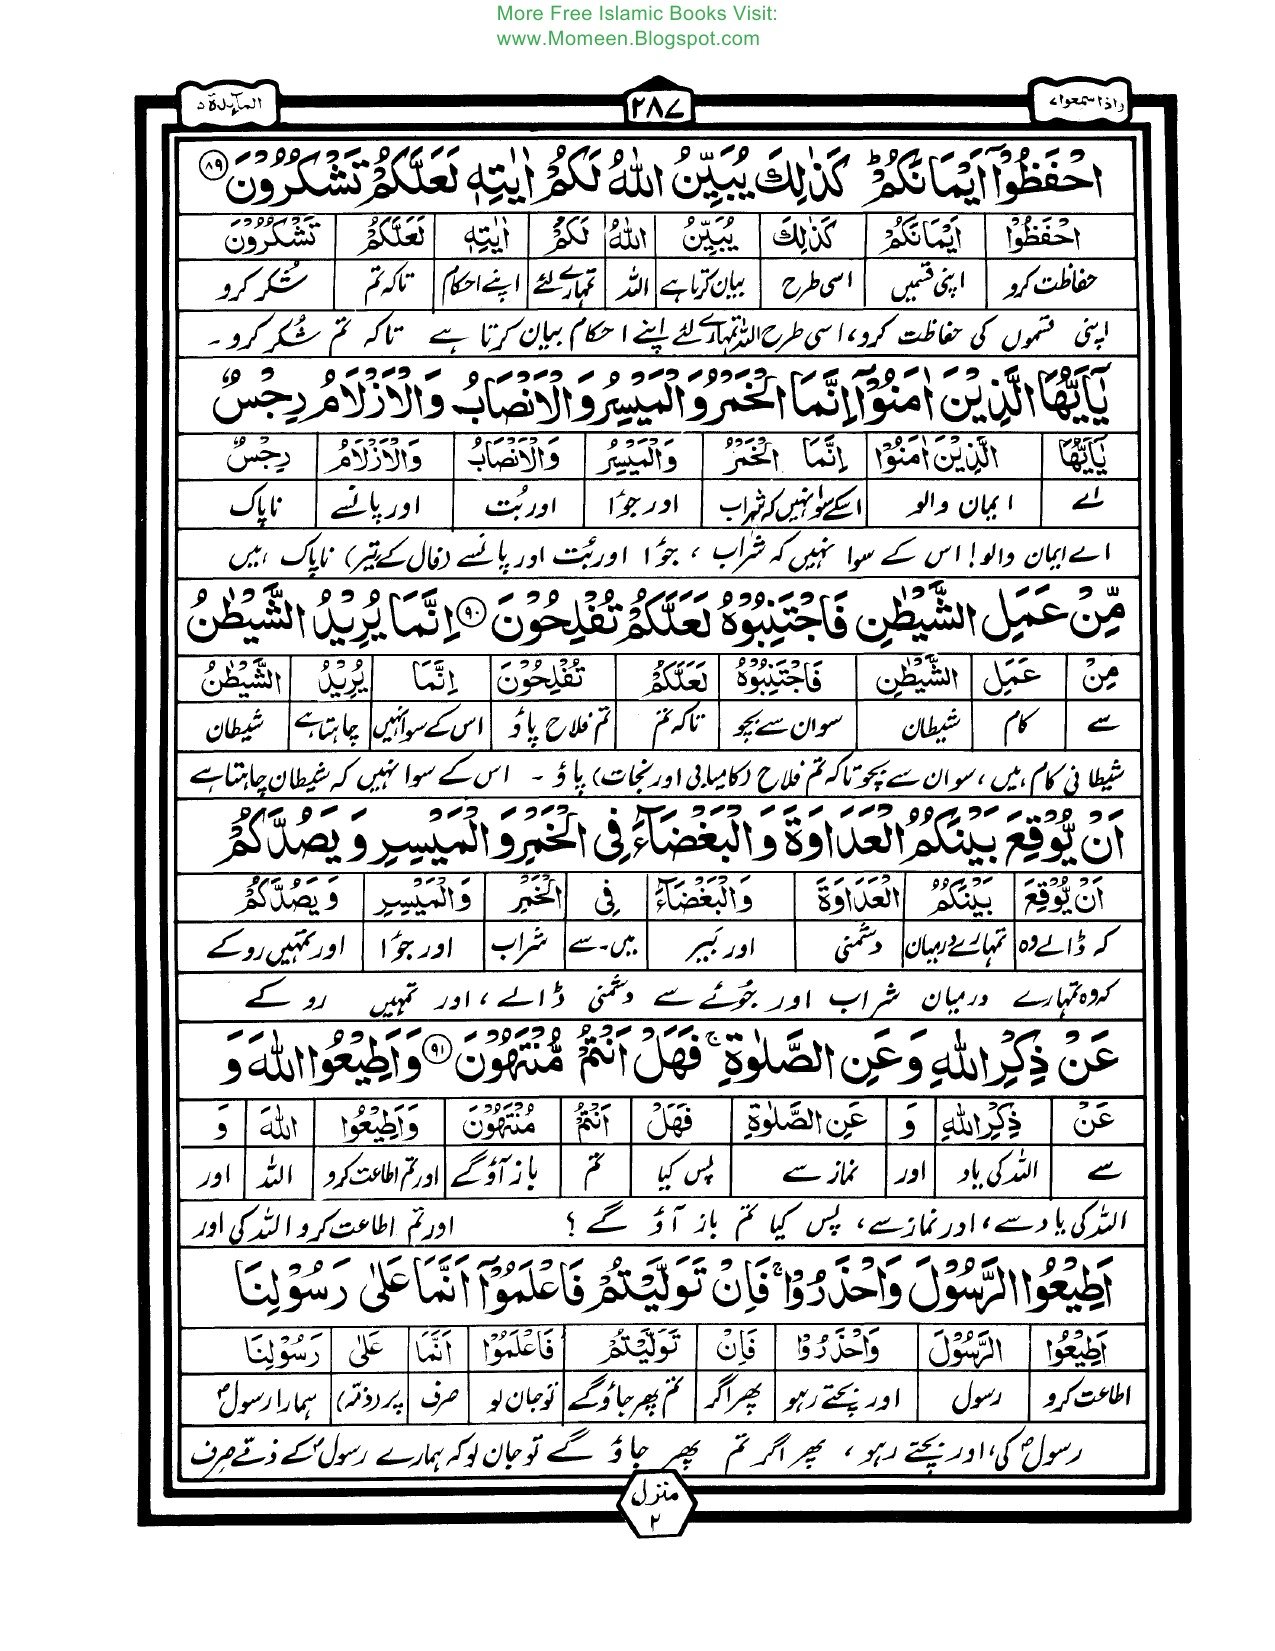 More Free Islamic Books Visit:
www.Momeen.Blogspot.com
واذا سمعوا ٧
٢٨٧
المآىدة ٥
احْفَظُوْٓا اَيْمَانَكُمْ ؕ كَذٰلِكَ يُبَيِّنُ اللّٰهُ لَكُمْ اٰيٰتِهٖ لَعَلَّكُمْ تَشْكُرُوْنَ ٨٩
احْفَظُوْٓا اَيْمَانَكُمْ كَذٰلِكَ يُبَيِّنُ اللّٰهُ لَكُمْ اٰيٰتِهٖ لَعَلَّكُمْ تَشْكُرُوْنَ
حفاظت کرو اپنی قسمیں اسی طرح بیان کرتا ہے اللہ تمہارے لئے اپنے احکام تاکہ تم شکر کرو
اپنی قسموں کی حفاظت کرو، اسی طرح اللہ تمہارے لئے اپنے احکام بیان کرتا ہے تاکہ تم شکر کرو۔
يٰٓاَيُّهَا الَّذِيْنَ اٰمَنُوْٓا اِنَّمَا الْخَمْرُ وَالْمَيْسِرُ وَالْاَنْصَابُ وَالْاَزْلَامُ رِجْسٌ
يٰٓاَيُّهَا الَّذِيْنَ اٰمَنُوْٓا اِنَّمَا الْخَمْرُ وَالْمَيْسِرُ وَالْاَنْصَابُ وَالْاَزْلَامُ رِجْسٌ
اے ایمان والو اسکے سوا نہیں کہ شراب اور جوُا اور بُت اور پانسے ناپاک
اے ایمان والو! اس کے سوا نہیں کہ شراب ، جوُا اور بُت اور پانسے (فال کے تیر) ناپاک ہیں
مِّنْ عَمَلِ الشَّيْطٰنِ فَاجْتَنِبُوْهُ لَعَلَّكُمْ تُفْلِحُوْنَ ٩٠ اِنَّمَا يُرِيْدُ الشَّيْطٰنُ
مِنْ عَمَلِ الشَّيْطٰنِ فَاجْتَنِبُوْهُ لَعَلَّكُمْ تُفْلِحُوْنَ اِنَّمَا يُرِيْدُ الشَّيْطٰنُ
سے کام شیطان سو ان سے بچو تاکہ تم تم فلاح پاؤ اس کے سوا نہیں چاہتا ہے شیطان
شیطانی کام ہیں، سو ان سے بچو تاکہ تم فلاح (کامیابی اور نجات) پاؤ ۔ اس کے سوا نہیں کہ شیطان چاہتا ہے
اَنْ يُّوْقِعَ بَيْنَكُمُ الْعَدَاوَةَ وَالْبَغْضَآءَ فِي الْخَمْرِ وَالْمَيْسِرِ وَيَصُدَّكُمْ
اَنْ يُّوْقِعَ بَيْنَكُمُ الْعَدَاوَةَ وَالْبَغْضَآءَ فِي الْخَمْرِ وَالْمَيْسِرِ وَيَصُدَّكُمْ
کہ ڈالے وہ تمہارے درمیان دشمنی اور بَیر میں۔سے شراب اور جوُا اور تمہیں روکے
کہ وہ تمہارے درمیان شراب اور جوُئے سے دشمنی ڈالے ، اور تمہیں روکے
عَنْ ذِكْرِ اللّٰهِ وَعَنِ الصَّلٰوةِ ۚ فَهَلْ اَنْتُمْ مُّنْتَهُوْنَ ٩١ وَاَطِيْعُوا اللّٰهَ وَ
عَنْ ذِكْرِ اللّٰهِ وَ عَنِ الصَّلٰوةِ فَهَلْ اَنْتُمْ مُنْتَهُوْنَ وَاَطِيْعُوا اللّٰهَ وَ
سے اللہ کی یاد اور نماز سے پس کیا تم باز آؤ گے اور تم اطاعت کرو اللہ اور
اللہ کی یاد سے، اور نماز سے، پس کیا تم باز آؤ گے ؟ اور تم اطاعت کرو اللہ کی اور
اَطِيْعُوا الرَّسُوْلَ وَاحْذَرُوْا ۚ فَاِنْ تَوَلَّيْتُمْ فَاعْلَمُوْٓا اَنَّمَا عَلٰى رَسُوْلِنَا
اَطِيْعُوا الرَّسُوْلَ وَاحْذَرُوْا فَاِنْ تَوَلَّيْتُمْ فَاعْلَمُوْٓا اَنَّمَا عَلٰى رَسُوْلِنَا
اطاعت کرو رسول اور بچتے رہو پھر اگر تم پھر جاؤ گے تو جان لو صرف پر (ذمّہ) ہمارا رسولؐ
رسولؐ کی، اور بچتے رہو ، پھر اگر تم پھر جاؤ گے تو جان لو کہ ہمارے رسولؐ کے ذمّے صرف
منزل
٢